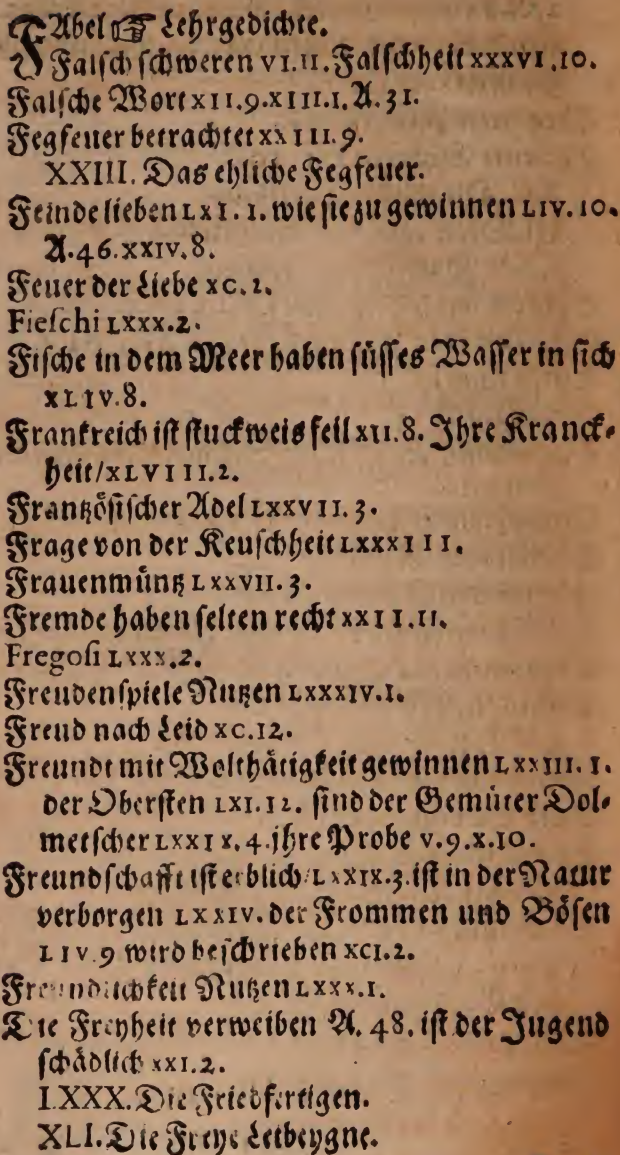 FAbel ☞ Lehrgedichte.
Falsch schweren VI.11. Falschheit XXXVI.10.
Falsche Wort XII.9.XIII.1.A.31.
Fegfeuer betrachtet XXIII.9.
XXIII. Das ehliche Fegfeuer.
Feinde lieben LXI.1. wie sie zu gewinnen LIV.10.
A.46.XXIV.8.
Feuer der Liebe XC.1.
Fieschi LXXX.2.
Fische in dem Meer haben süsses Wasser in sich
XLIV.8.
Franckreich ist stuckweis feil XII.8. Ihre Kranck-
heit/XLVIII.2.
Frantzösischer Adel LXXVII.3.
Frage von der Keuschheit LXXXIII.
Frauenmüntz LXXVII.3.
Fremde haben selten recht XXII.11.
Fregosi LXXX.2.
Freudenspiele Nutzen LXXXIV.1.
Freud nach Leid XC.12.
Freundt mit Wolthätigkeit gewinnen LXXIII.1.
der Obersten LXI.12. sind der Gemüter Dol-
metscher LXXIX.4. jhre Probe V.9.X.10.
Freundschafft ist erblich LXXIX.3. ist in der Natur
verborgen LXXIV. der Frommen und Bösen
LIV.9 wird beschrieben XCI.2.
Freundlichkeit Nutzen LXXX.1.
Die Freyheit verweiben A. 48. ist der Jugend
schädlich XXI.2.
LXXX. Die Friedfertigen.
XLI. Die Freye Leibeygne.